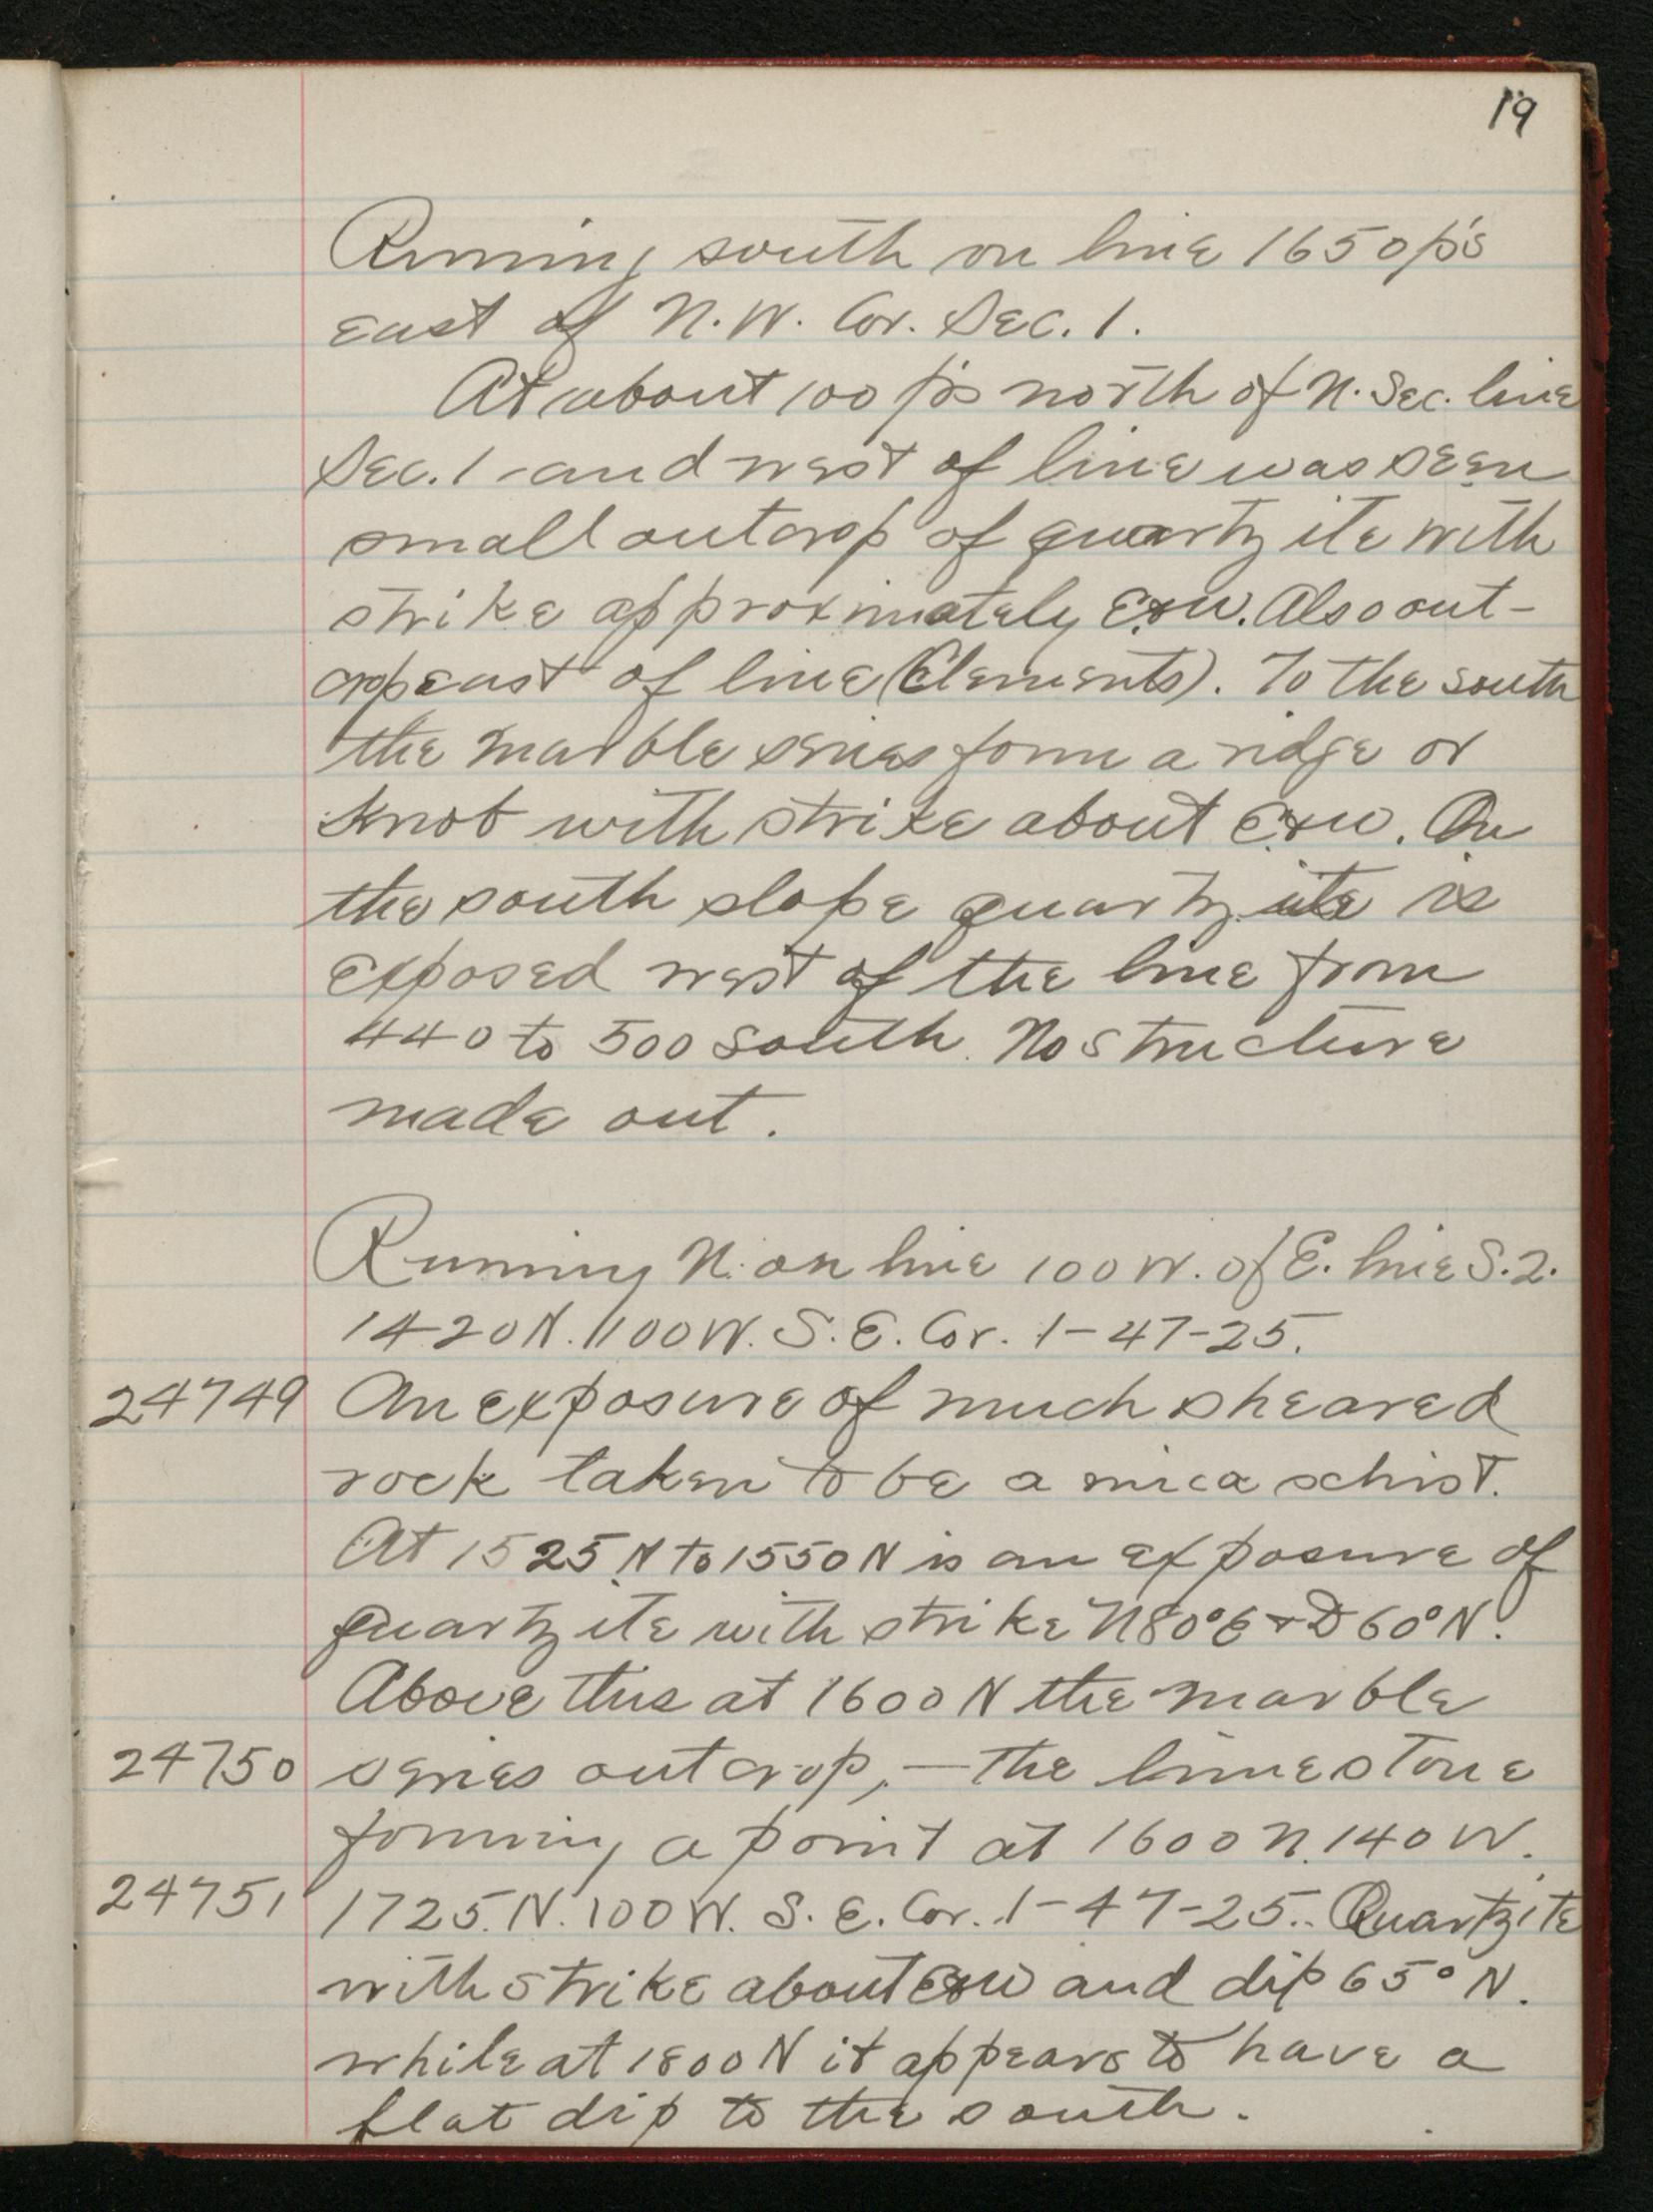 19
Running south on line 1650 p's
east of N.W. Cor. Sec. 1.
At about 100 p's north of N. Sec. line
Sec. 1 and west of line was seen
small outcrop of quartzite with
strike approximately E. & W. Also out-
crop east of line (Clements). To the south
the marble series form a ridge or
knob with strike about E. & W. On
the south slope quartzite is
exposed west of the line from
440 to 500 south. No structure
made out.
Running N. on line 100 W. of E. line S. 2.
1420 N. 1100 W. S. E. Cor. 1-47-25.
24749 An exposure of much sheared
rock taken to be a mica schist.
At 1525 N to 1550 N is an exposure of
quartzite with strike N 80° E & D 60° N.
Above this at 1600 N the marble
24750 series outcrop, — the limestone
forming a point at 1600 N. 140 W.
24751 1725 N. 100 W. S. E. Cor. 1-47-25. Quartzite
with strike about E & W and dip 65° N.
while at 1800 N it appears to have a
flat dip to the south.